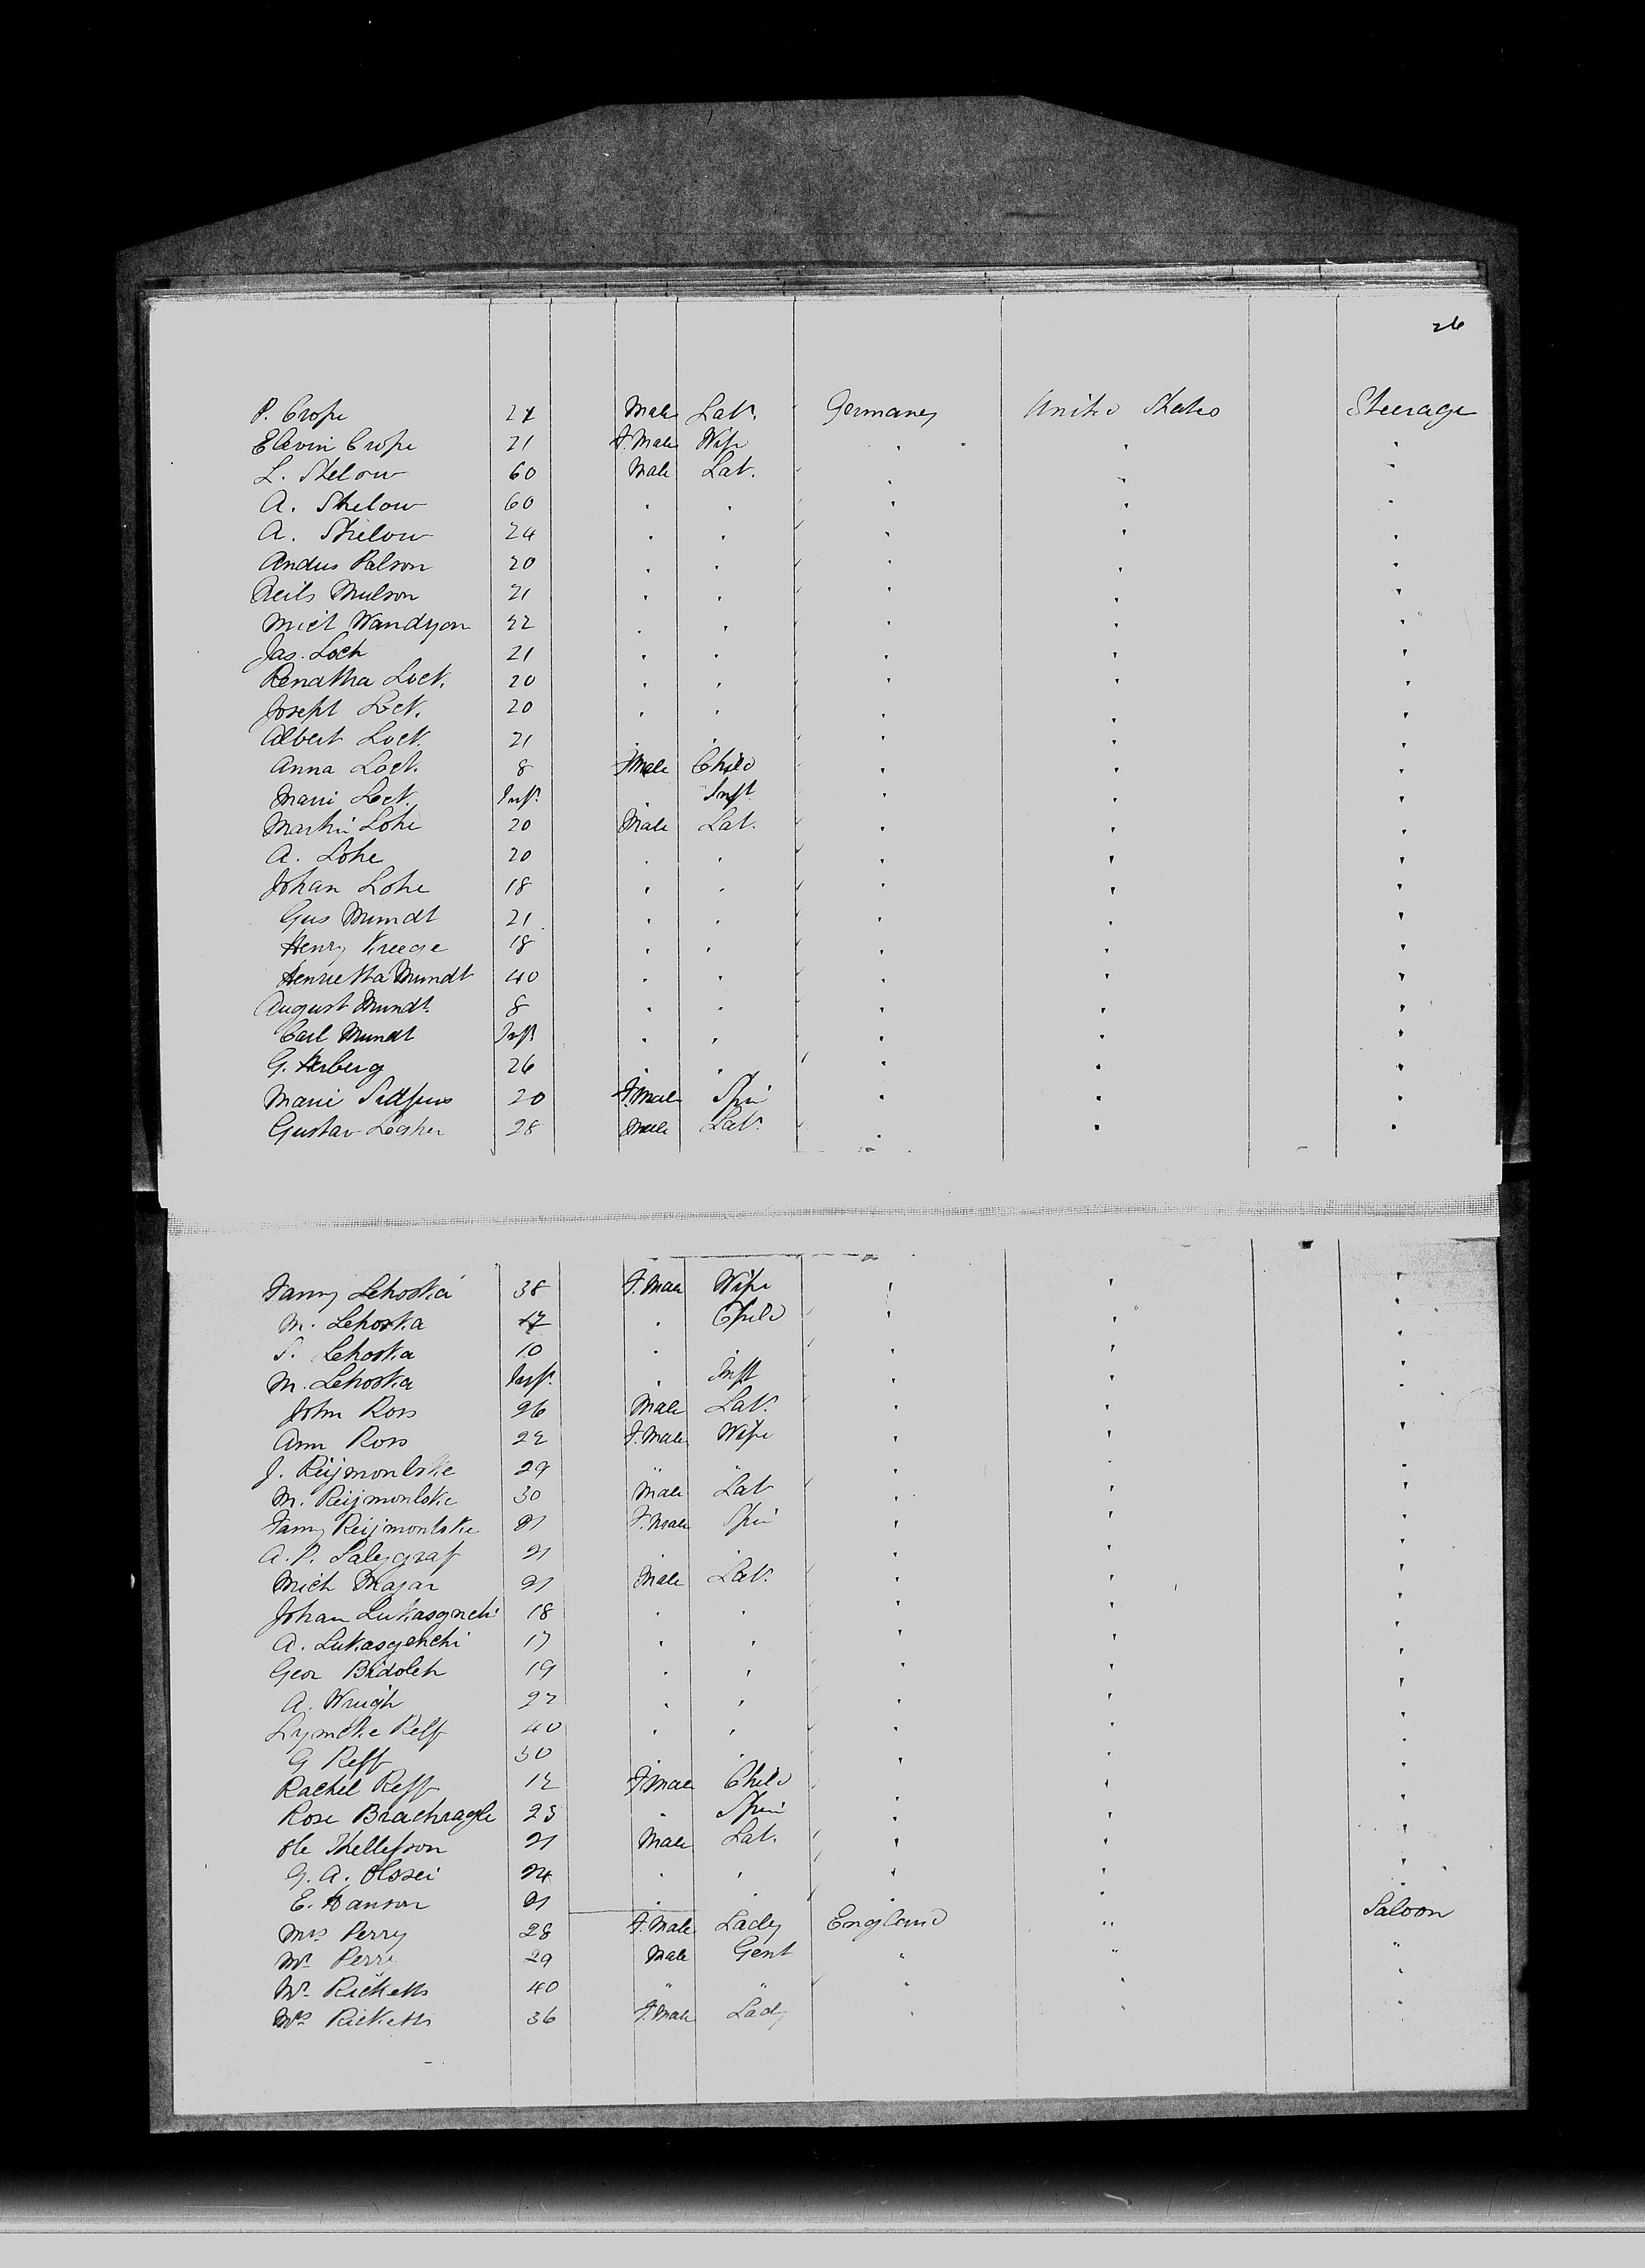 26
P. Crope 27 Male Lab. Germany United States Steerage
Elevin Crope 21 F.Male Wife " " " "
L. Shelow 60 Male Lab. " " "
A. Shelow 60 " " " " "
A. Shelow 24 " " " " "
Andus Palson 20 " " " " "
Neils Mulson 21 " " " " "
Mich Wandyon 22 " " " " "
Jas. Loch 21 " " " " "
Renatha Lock. 20 " " " " "
Joseph Lock. 20 " " " " "
Albert Lock. 21 " " " " "
Anna Lock. 8 F.Male Child " " "
Mari Lock. Inft. " Inft " " "
Martin Lohe 20 Male Lab. " " "
A. Lohe 20 " " " " "
Johan Lohe 18 " " " " "
Gus Mundt 21 " " " " "
Henry Kreege 18 " " " " "
Henrietta Mundt 40 " " " " "
August Mundt. 8 " " " " "
Carl Mundt Inft " " " " "
G. Herberg 26 " " " " "
Marie 20 F.Male Spin " " "
Gustav Legher 28 Male Lab. " " "
Fanny Lehoska 38 F.Male Wife " " "
M. Lehoska 17 " Child " " "
S. Lehoska 10 " " " " "
M. Lehoska Inft. " Inft " " "
John Ross 26 Male Lab. " " "
Ann Ross 22 F.Male Wife " " "
J. Reijmonlske 29 " " " " "
M. Reijmonlske 30 Male Lab " " "
Fanny Reijmonlske 21 F.Male Spin " " "
A. P. Salegraf 21 " " " " "
Mich Majar 21 Male Lab. " " "
Johan Lukasgnchi 18 " " " " "
A. Lukasgenchi 17 " " " " "
Geor Bidolch 19 " " " " "
A. Wrugh 27 " " " " "
Lymche Reff 40 " " " " "
G Reff 30 " " " " "
Rachel Reff 12 F.Male Child " " "
Rose Brachragle 23 " Spin " " "
Ole Skellefson 21 Male Lab. " " "
G. A. Olosei 24 " " " " "
E. Hanson 21 " " " " "
Mrs Perry 28 F.Male Lady England " Saloon
Mr Perry 29 Male Gent " " "
Mr. Ricketts 40 " " " " "
Mrs Ricketts 36 F.Male Lady " " "